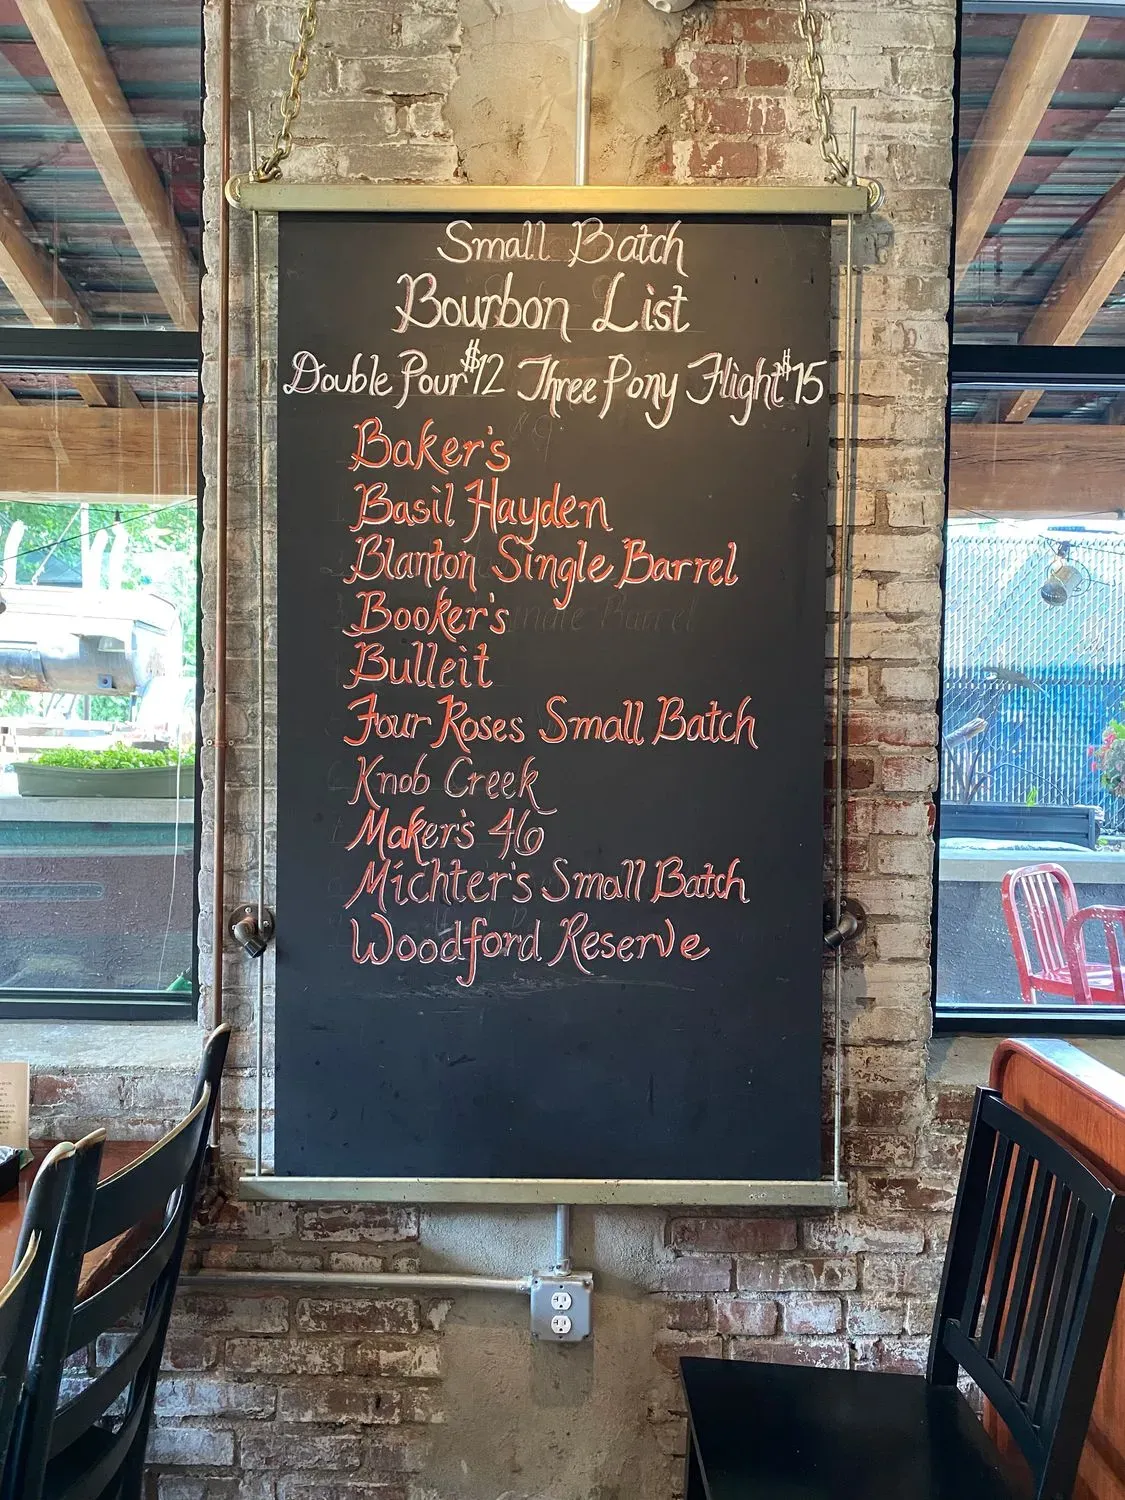 Small Batch
Bourbon List
Double Pour $12 Three Pony Flight $15
Baker's
Basil Hayden
Blanton Single Barrel
Booker's
Bulleit
Four Roses Small Batch
Knob Creek
Maker's 46
Michter's Small Batch
Woodford Reserve